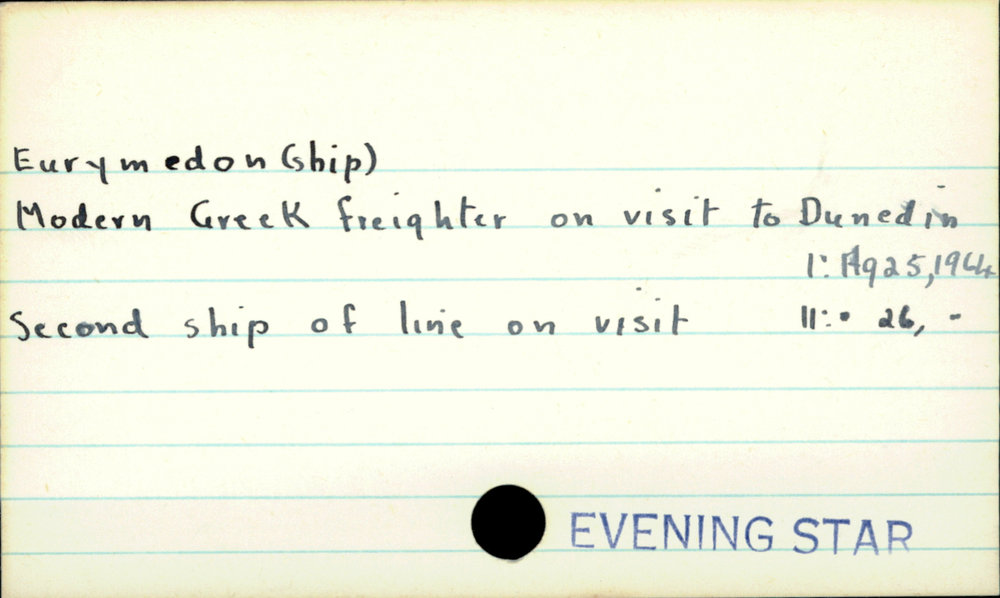 Eurymedon (ship)
Modern Greek freighter on visit to Dunedin
1: Ag 25, 1964
Second ship of line on visit 11: " 26, -
EVENING STAR